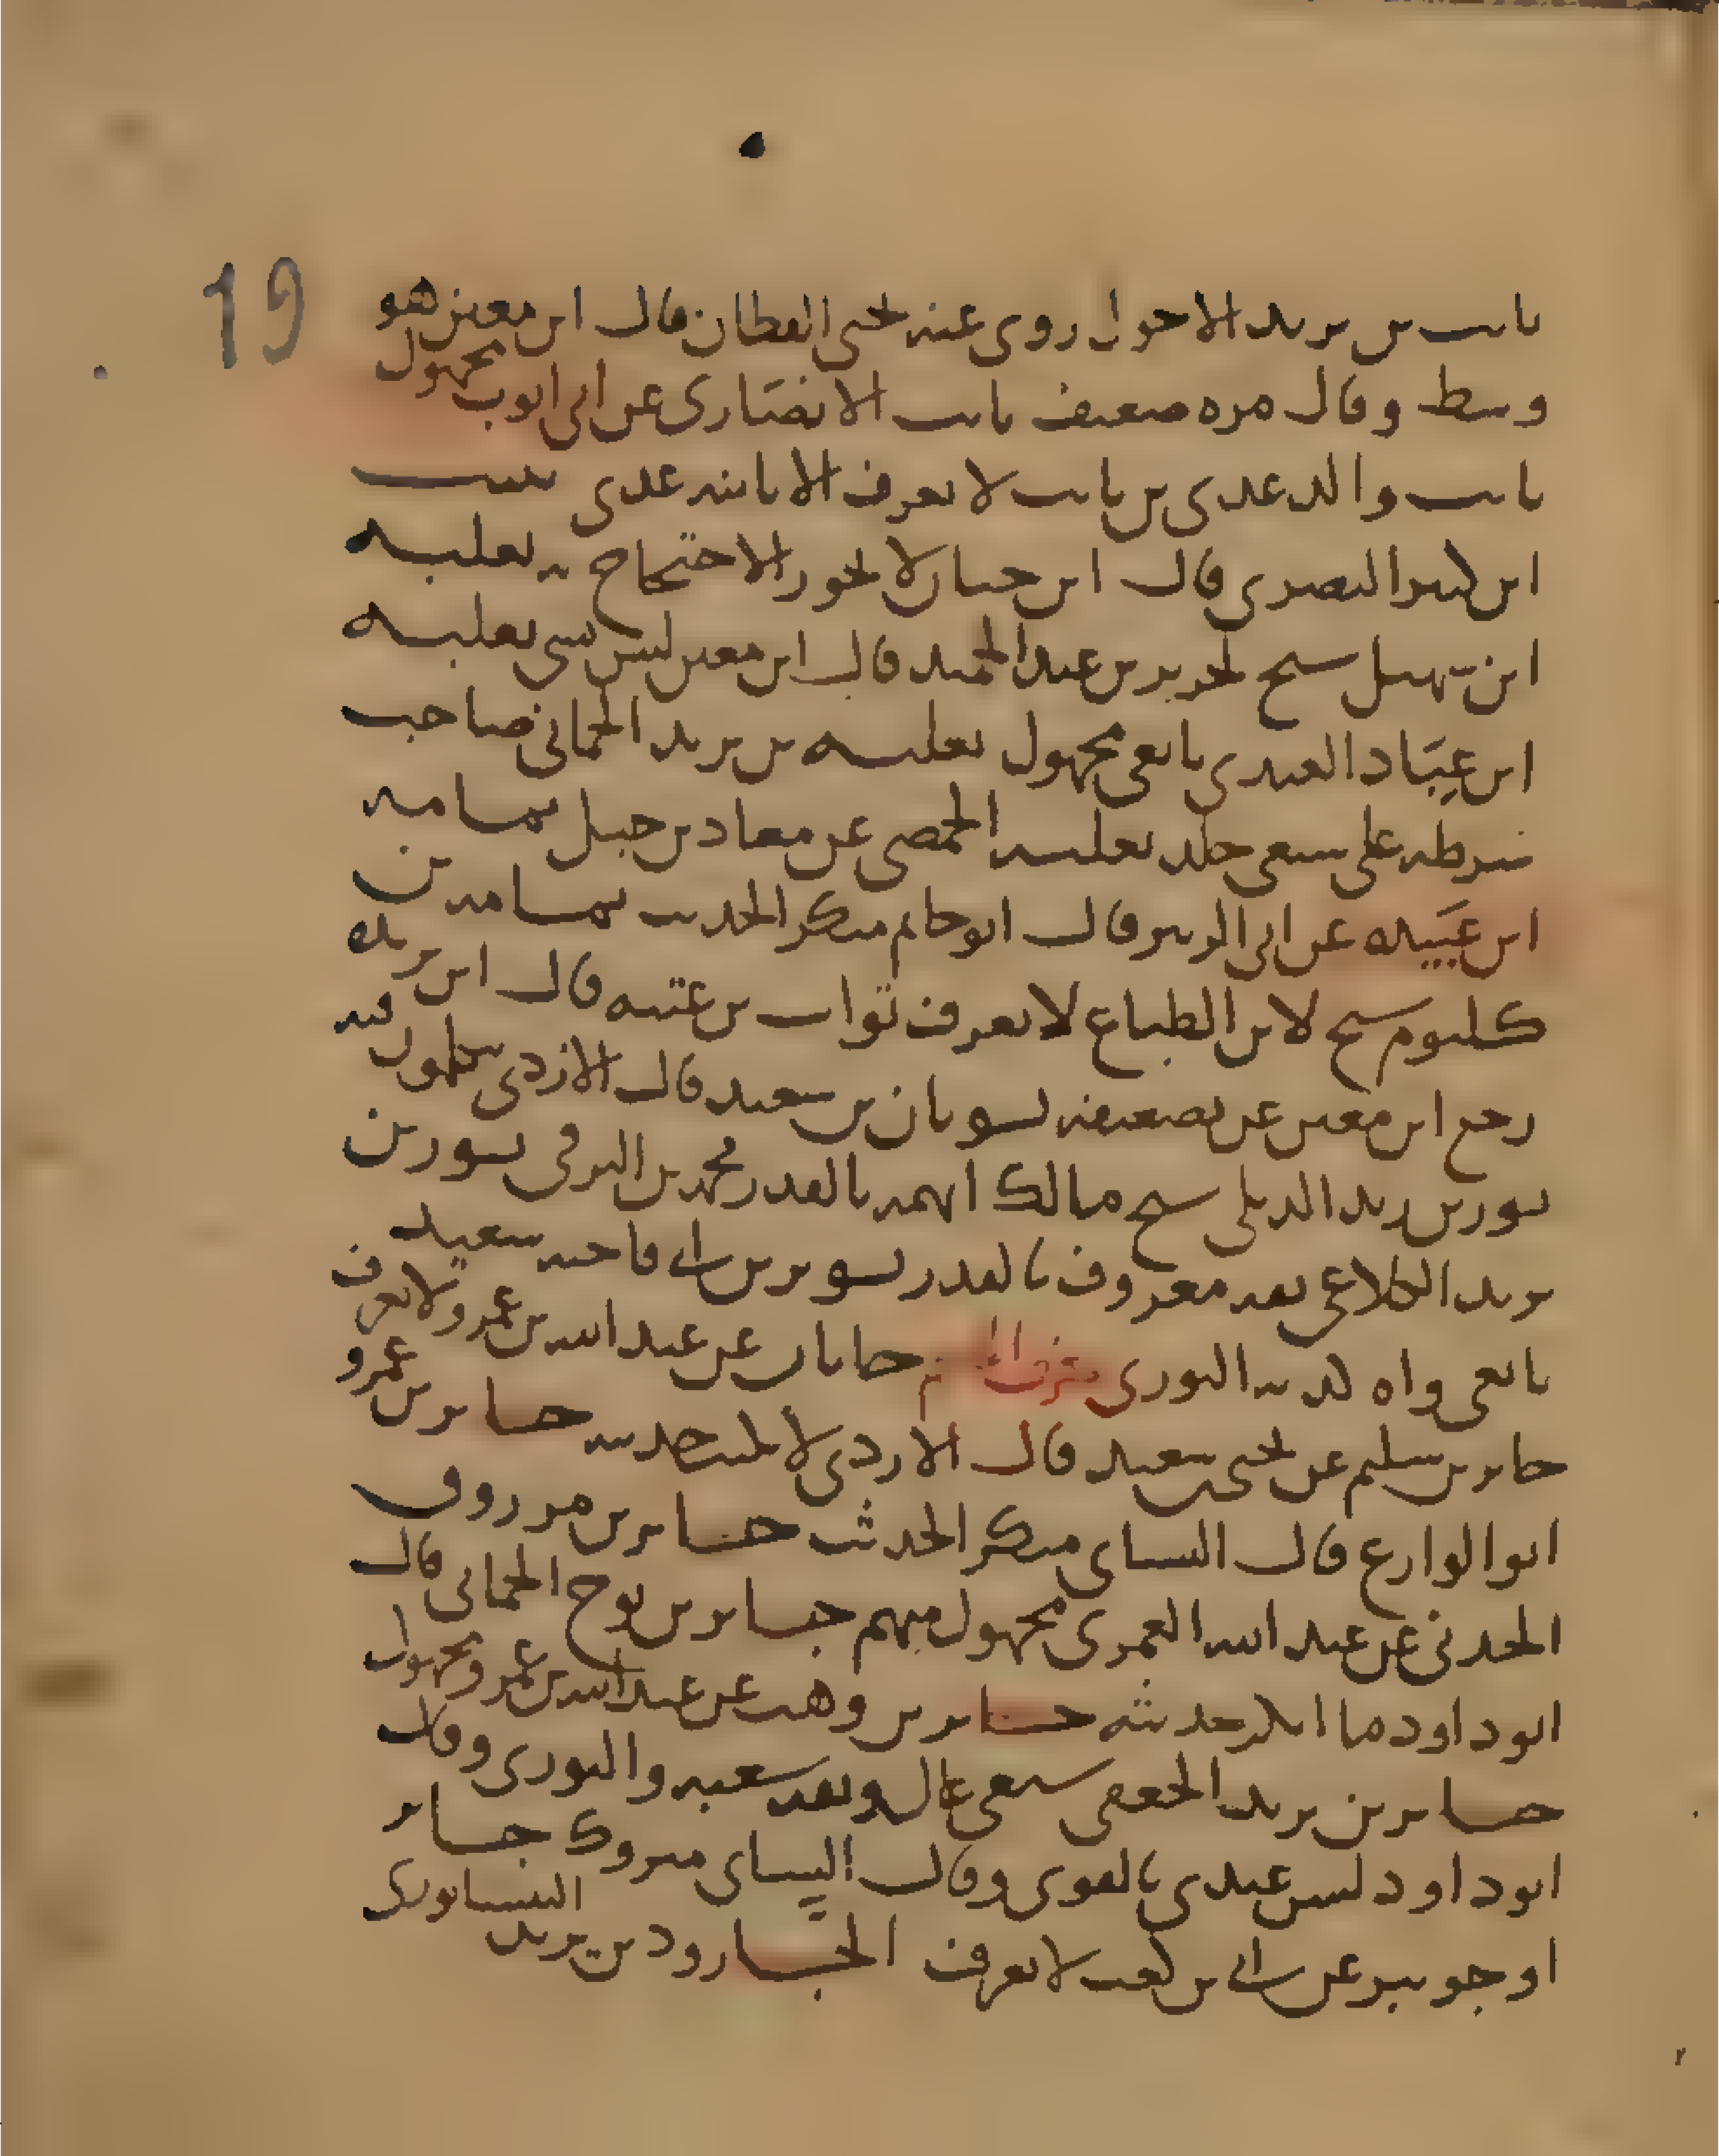 19
ثابت بن يزيد الاحول روى عنه يحيى القطان قال ابن معين هو
وسط وقال مره ضعيف ثابت الانصاري عن ابي ايوب مجهول
ثابت والد عدي بن ثابت لا يعرف الا بابنه عدي ثبيت
ابن كثير البصري قال ابن حبان لا يجوز الاحتجاج به ثعلبه
ابن سهيل شيخ لجرير بن عبد الحميد قال ابن معين ليس بشي ثعلبه
ابن عباد العبدي تابعي مجهول ثعلبه بن يزيد الحماني صاحب
شرطه علي شيعي جلد ثعلبه الحمصي عن معاذ بن جبل ثمامه
ابن عبيده عن ابي الزبير قال ابو حاتم منكر الحديث ثمامه بن
كلثوم شيخ لابن الطباع لا يعرف ثواب بن عتبه قال ابن
رجع ابن معين عن تضعيفه ثوبان بن سعيد قال الازدي يتكلمون فيه
ثور بن زيد الديلي شيخ مالك اتهمه بالقدر محمد بن البرقي ثور بن
يزيد الكلاعي ثقه معروف بالقدر ثوير بن ابي فاخته سعيد
تابعي واه كذبه الثوري جابان عن عبد الله بن عمرو لا يعرف
جابر بن سليم عن يحيى بن سعيد قال الازدي لا يكتب حديثه جابر بن عمرو
ابو الوازع قال النساي منكر الحديث جابر بن مرزوق
الجدي عن عبد الله العمري مجهول متهم جابر بن نوح الحماني قال
ابو داود ما انكر حديثه جابر بن وهب عن عبد الله بن عمرو مجهول
جابر بن يزيد الجعفي شيعي غال وثقه شعبه والثوري وقال
ابو داود ليس عندي بالقوي وقال النساي متروك جابر
او جويبر عن ابي بن كعب لا يعرف الجارود بن يزيد النيسابوري